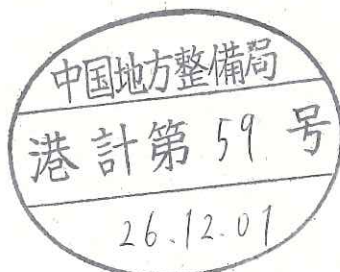 中国地方整備局
港計第59号
26.12.01